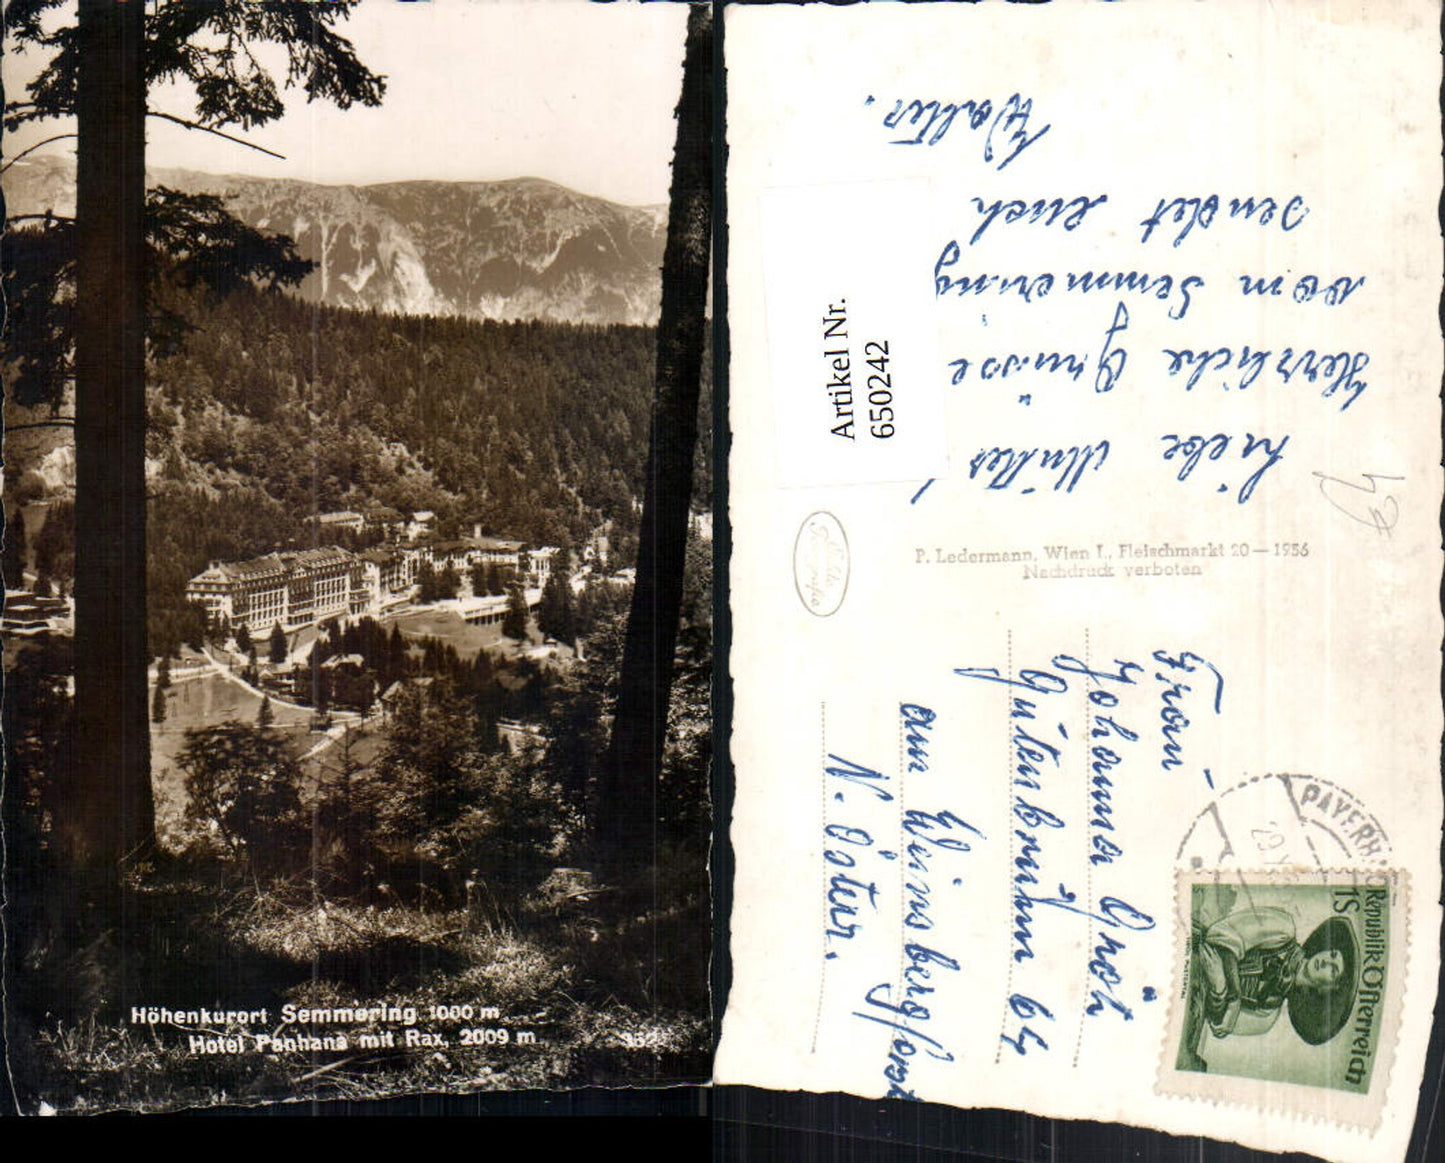 Höhenkurort Semmering 1000 m
Hotel Panhans mit Rax, 2009 m
352
Liebe Mutter!
Herzliche Grüsse
vom Semmering
sendet euch
Walter.
Artikel Nr.
650242
P. Ledermann, Wien I., Fleischmarkt 20 — 1956
Nachdruck verboten
Frau
Johanna Gröh
Gutenbrunn 64
am Weinsberg/forst
N. Österr.
PAYERB
Republik Österreich
1S